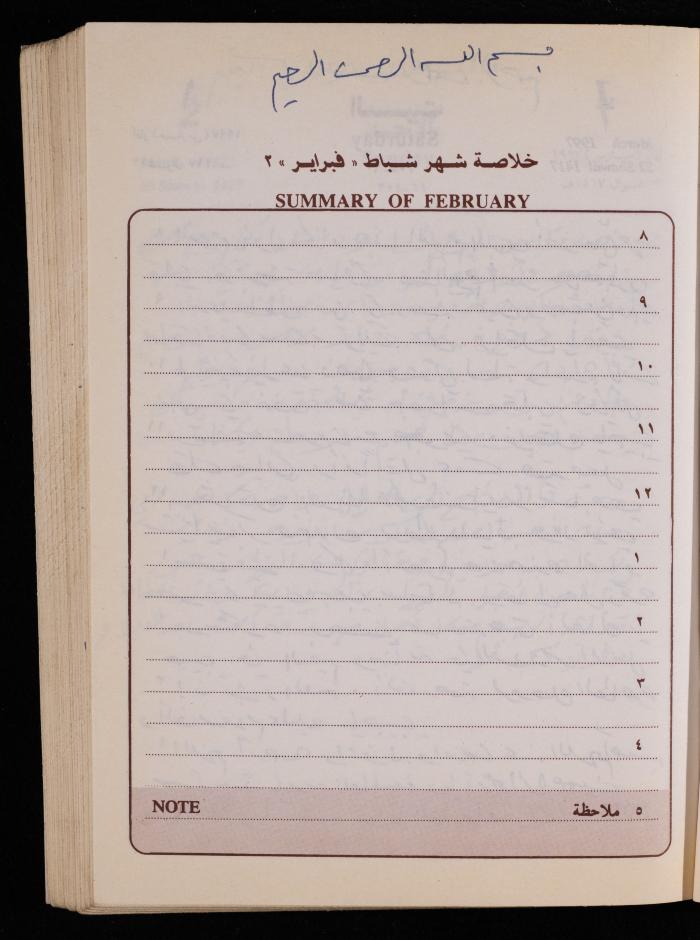 بسم الله الرحمن الرحيم
خلاصة شهر شباط « فبراير » ٢
SUMMARY OF FEBRUARY
٨
٩
١٠
١١
١٢
١
٢
٣
٤
NOTE ٥ ملاحظة